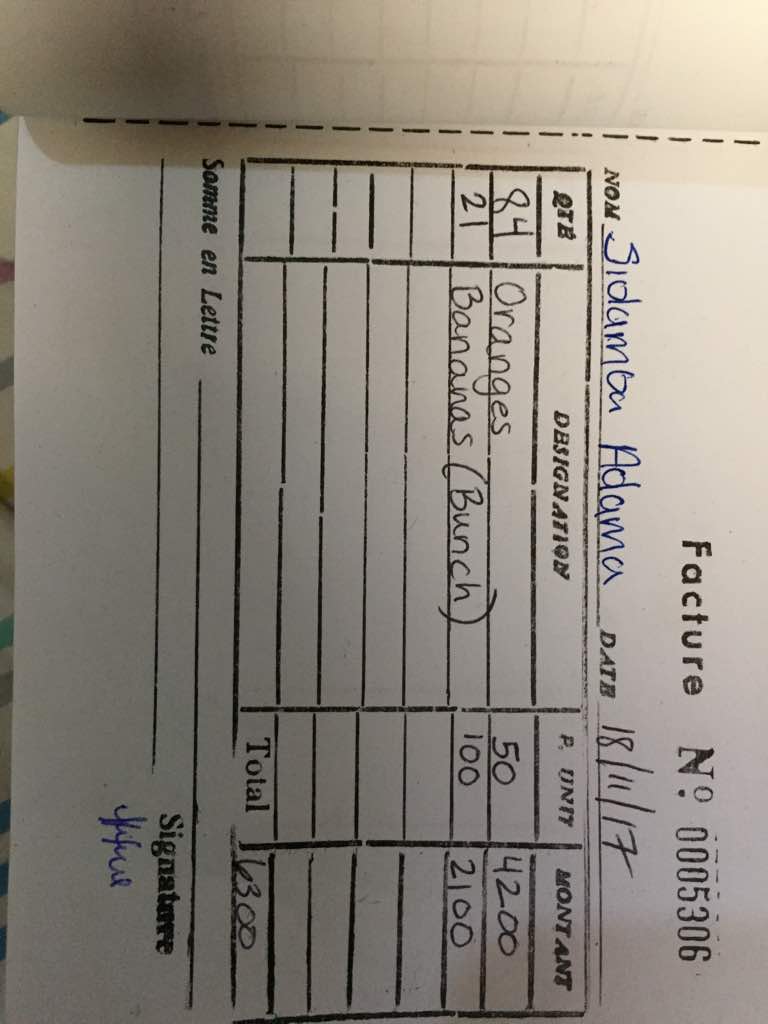 Facture Nº. 0005306
NOM Sidamba Adama DATE 18/11/17
QTÉ DESIGNATION P. UNIT MONTANT
84 Oranges 50 4200
21 Bananas (Bunch) 100 2100
Total 6300
Somme en Lettre
Signature